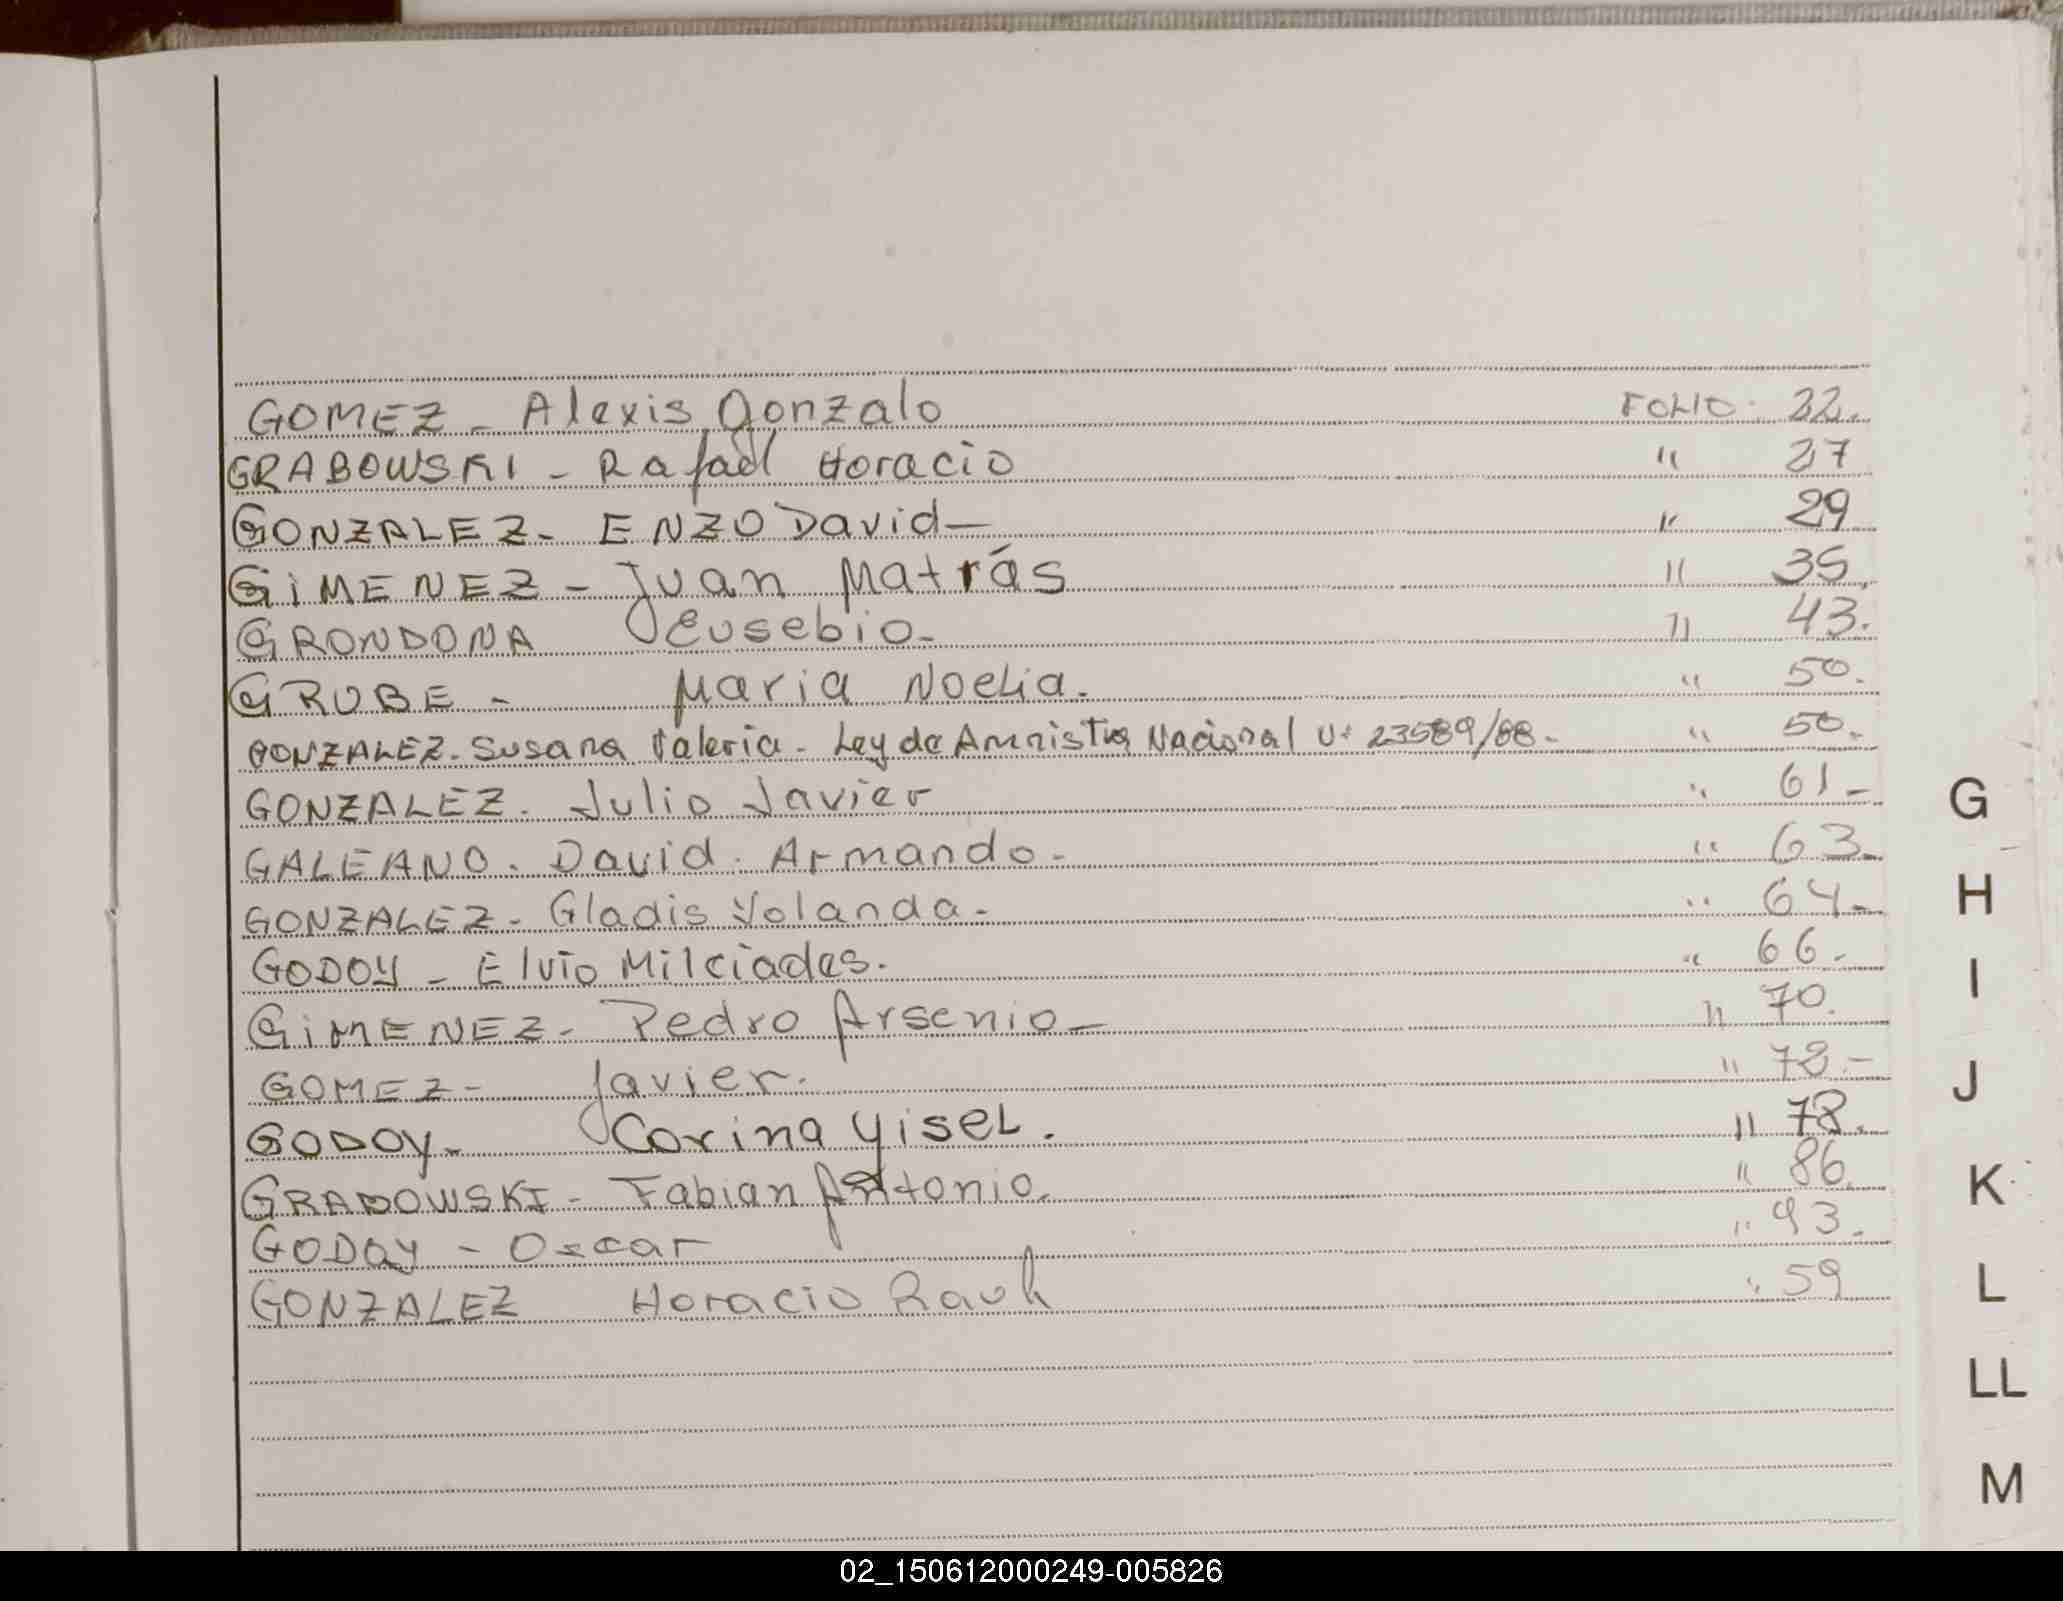 GOMEZ - Alexis Gonzalo FOLIO. 22.
GRABOWSKI - Rafael Horacio " 27
GONZALEZ - ENZO David - " 29
GIMENEZ - Juan Matrás " 35
GRONDONA Eusebio - " 43.
GRUBE - Maria Noelia. " 50.
GONZALEZ. Susana Valeria - Ley de Amnistia Nacional 23589/88 - " 50.
GONZALEZ. Julio Javier " 61 -
GALEANO. David. Armando. " 63.
GONZALEZ - Gladis Yolanda - " 64 -
GODOY - Elvio Milciades. " 66 -
GIMENEZ - Pedro Arsenio - " 70.
GOMEZ - Javier. " 78 -
GODOY - Corina Yisel. " 78.
GRADOWSKI - Fabian Antonio. " 86.
GODOY - Oscar " 93.
GONZALEZ Horacio Raul " 59
G
H
I
J
K
L
LL
M
02_150612000249-005826